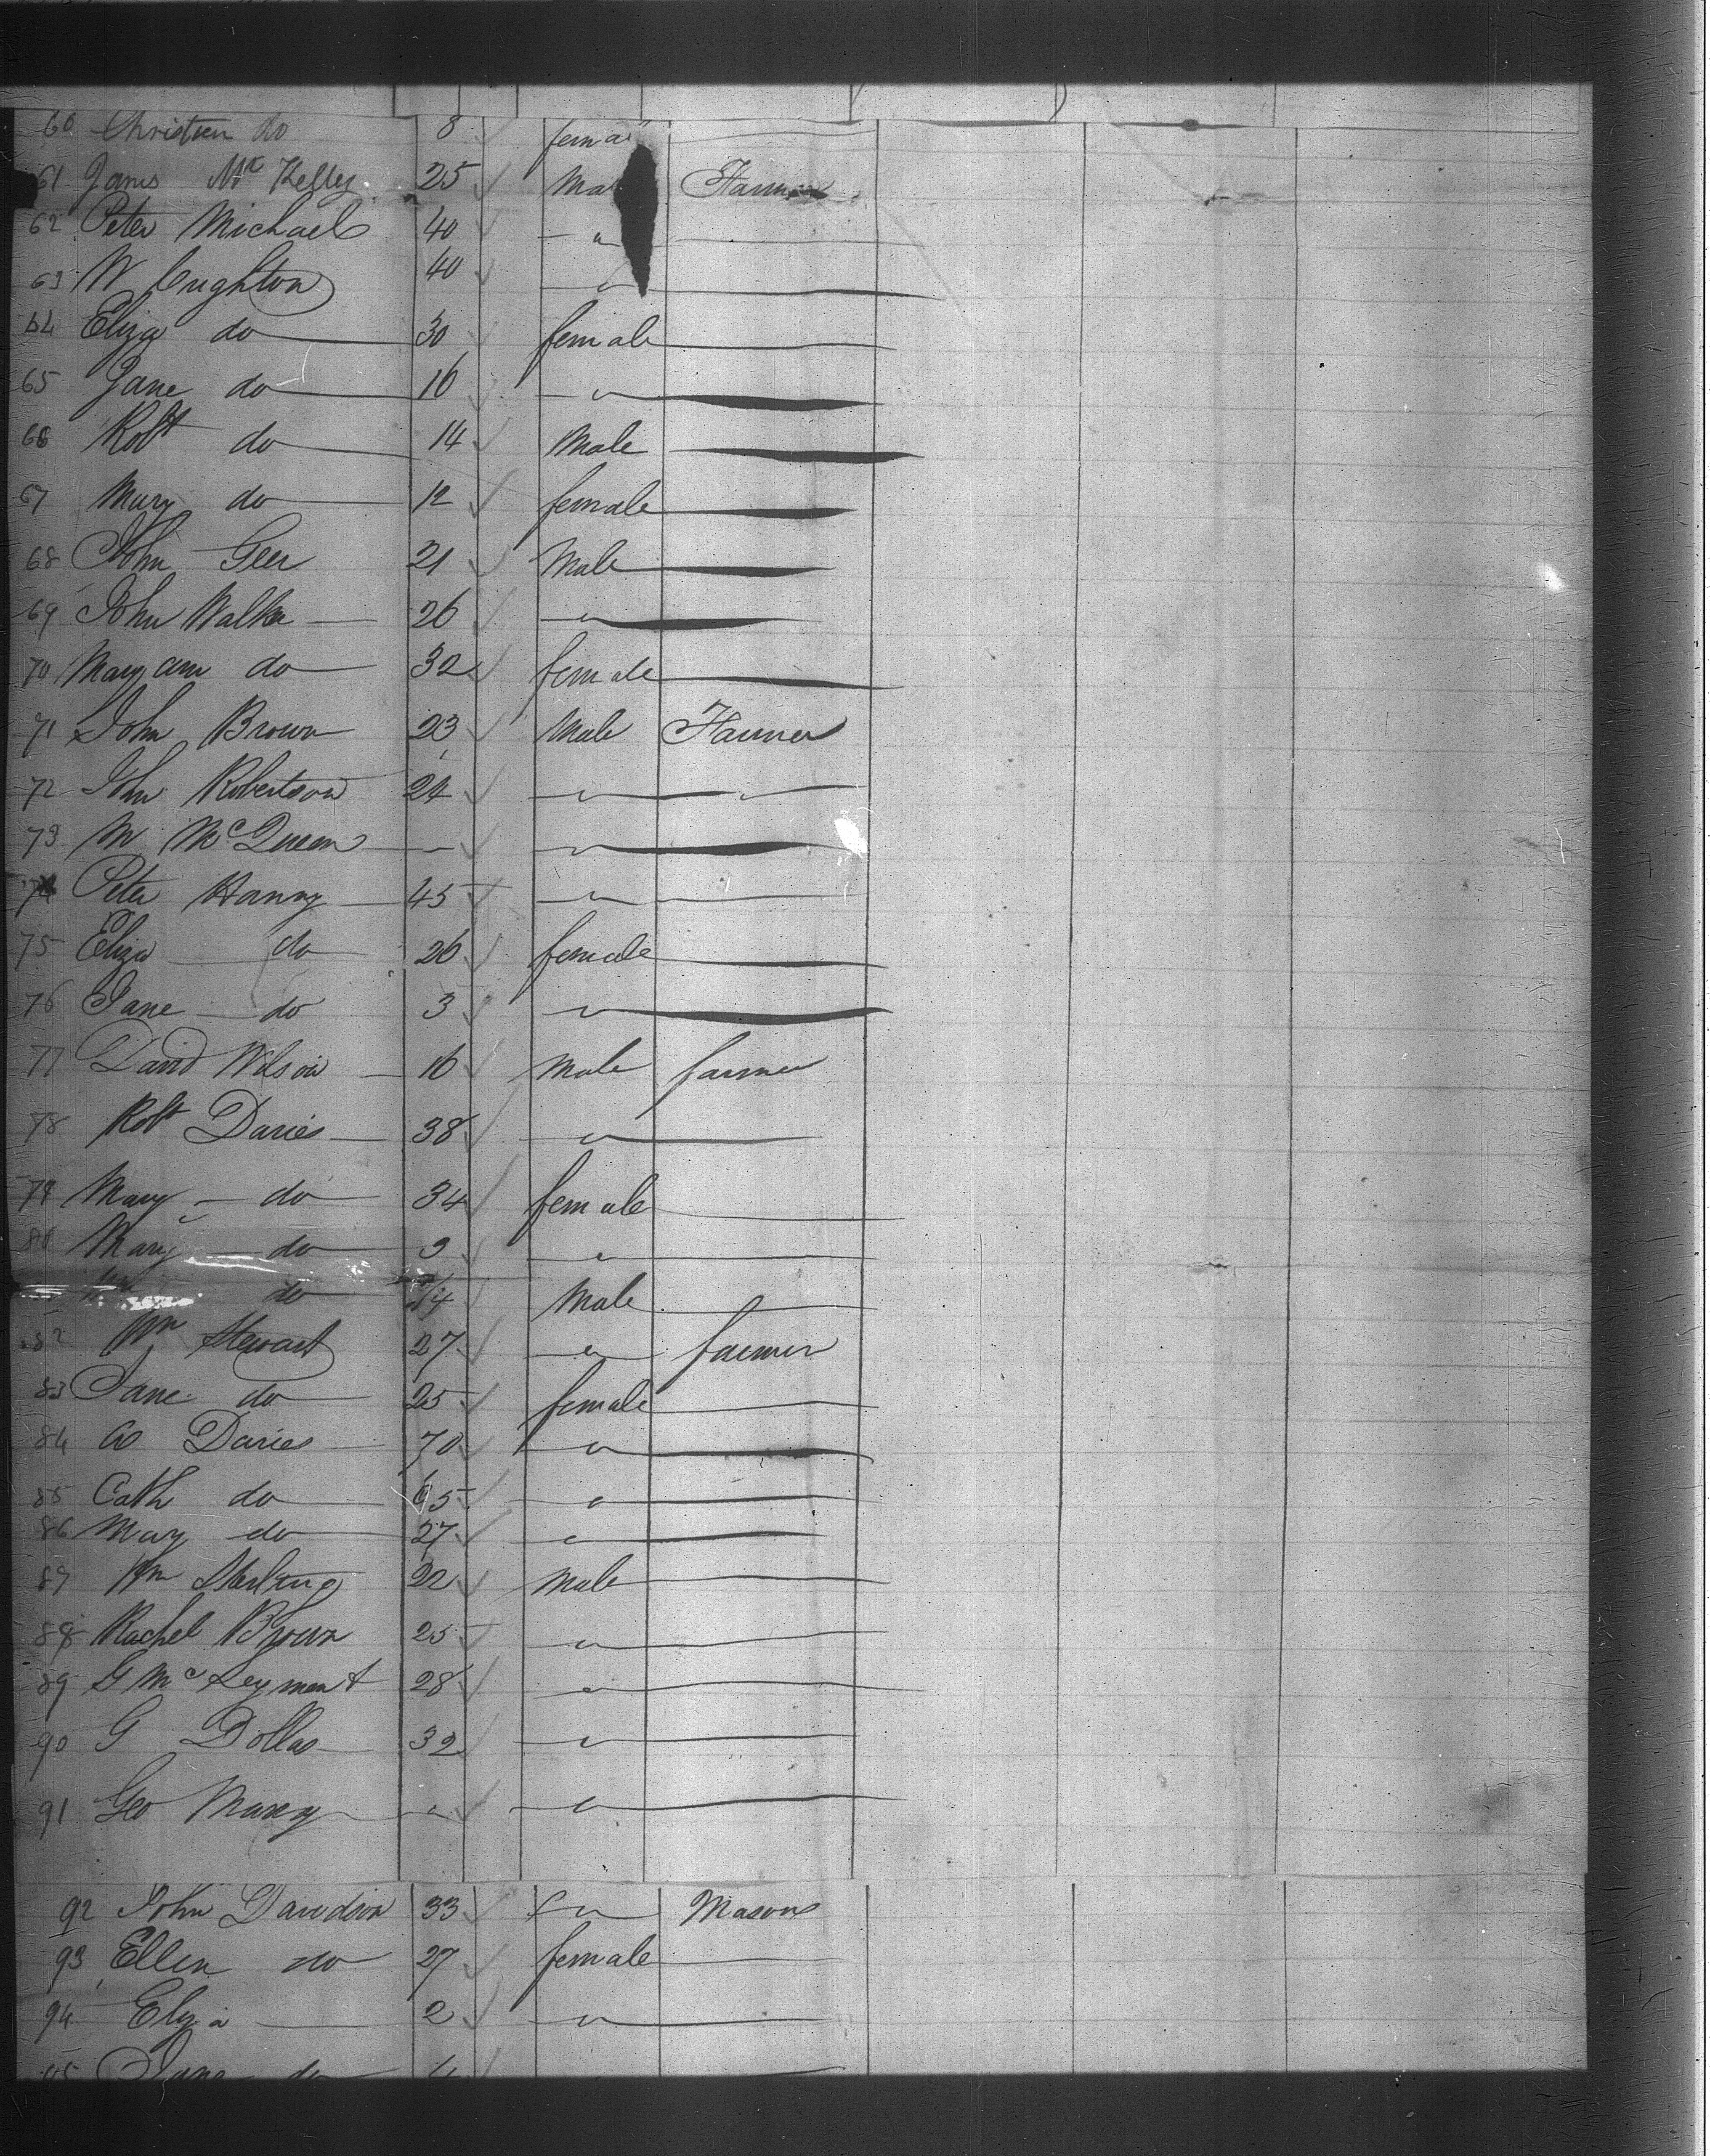 60 Christien do 8 fema
61 James Mc Kelly 25 Mal Farmer
62 Peter Michael 40 "
63 W Crighton 40 "
64 Eliza do 30 female
65 Jane do 16 "
66 Robt do 14 Male
67 Mary do 12 female
68 John Geer 21 Male
69 John Walker 26 "
70 Mary ann do 32 female
71 John Brown 23 Male Farmer
72 John Robertson 24 " "
73 M McQueen " "
74 Peter Hanny 45 "
75 Eliza do 26 female
76 Jane do 3 "
77 David Wilson 16 Male farmer
78 Robt Davies 38 "
79 Mary do 34 female
80 Mary do 3 "
do Male
82 Wm Stewart 27 " farmer
83 Jane do 25 female
84 Davies 70 "
85 Cath do 65 "
86 Mary do 27 "
87 Wm Sterling 22 Male
88 Rachel Brown 25 "
89 G Mc 28 "
90 G Dollas 32 "
91 Geo " "
92 John Davidson 33 " Mason
93 Ellen do 27 female
94 Eliza 2 "
95 Jane do